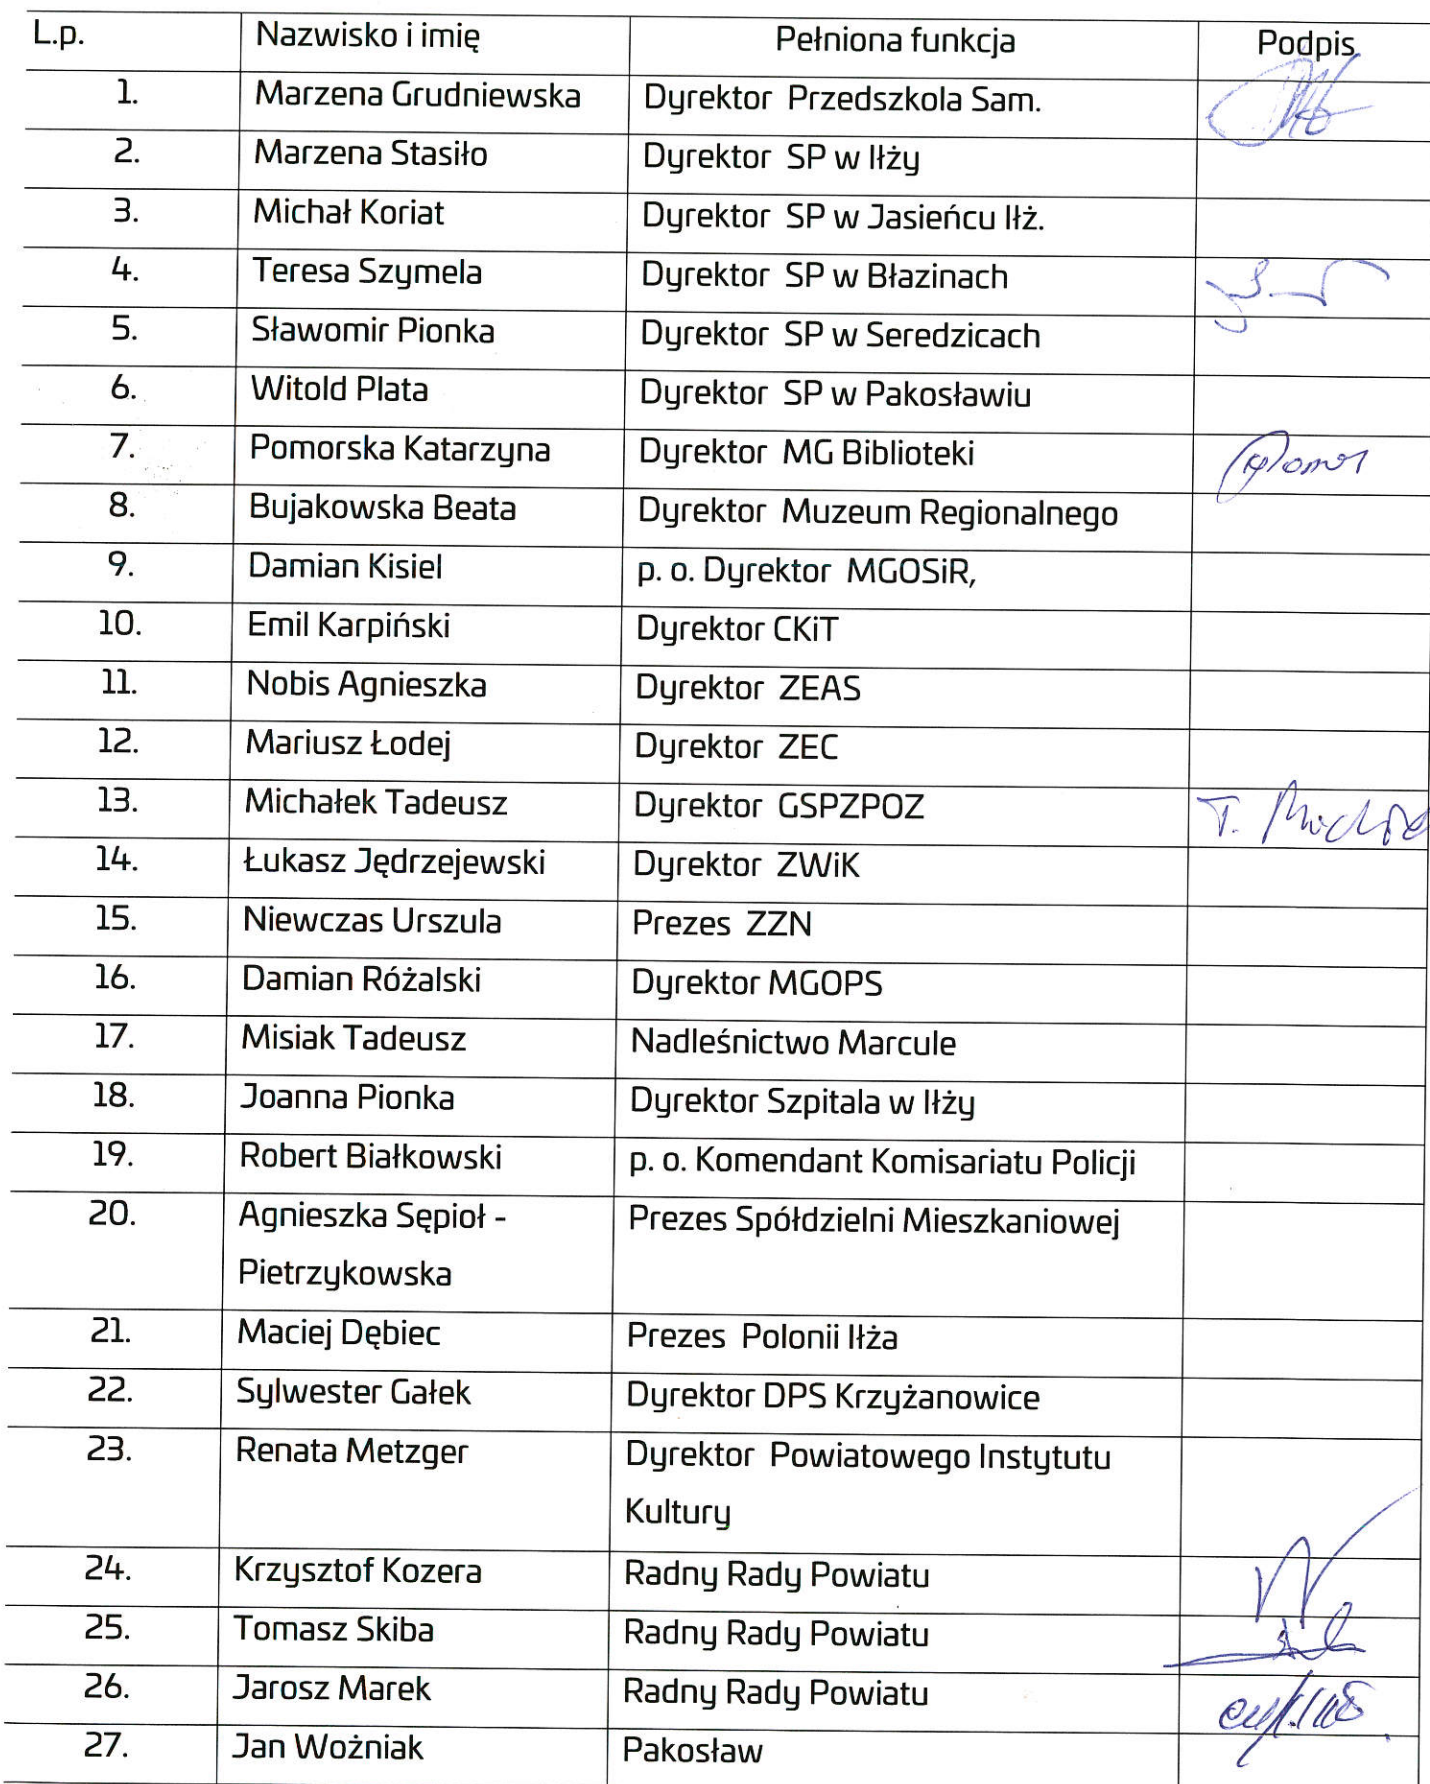 L.p. Nazwisko i imię Pełniona funkcja Podpis
1. Marzena Grudniewska Dyrektor Przedszkola Sam.
2. Marzena Stasiło Dyrektor SP w Iłży
3. Michał Koriat Dyrektor SP w Jasieńcu Iłż.
4. Teresa Szymela Dyrektor SP w Błazinach
5. Sławomir Pionka Dyrektor SP w Seredzicach
6. Witold Plata Dyrektor SP w Pakosławiu
7. Pomorska Katarzyna Dyrektor MG Biblioteki
8. Bujakowska Beata Dyrektor Muzeum Regionalnego
9. Damian Kisiel p. o. Dyrektor MGOSiR,
10. Emil Karpiński Dyrektor CKiT
11. Nobis Agnieszka Dyrektor ZEAS
12. Mariusz Łodej Dyrektor ZEC
13. Michałek Tadeusz Dyrektor GSPZPOZ T.
14. Łukasz Jędrzejewski Dyrektor ZWiK
15. Niewczas Urszula Prezes ZZN
16. Damian Różalski Dyrektor MGOPS
17. Misiak Tadeusz Nadleśnictwo Marcule
18. Joanna Pionka Dyrektor Szpitala w Iłży
19. Robert Białkowski p. o. Komendant Komisariatu Policji
20. Agnieszka Sępioł - Prezes Spółdzielni Mieszkaniowej
Pietrzykowska
21. Maciej Dębiec Prezes Polonii Iłża
22. Sylwester Gałek Dyrektor DPS Krzyżanowice
23. Renata Metzger Dyrektor Powiatowego Instytutu
Kultury
24. Krzysztof Kozera Radny Rady Powiatu
25. Tomasz Skiba Radny Rady Powiatu
26. Jarosz Marek Radny Rady Powiatu
27. Jan Wożniak Pakosław